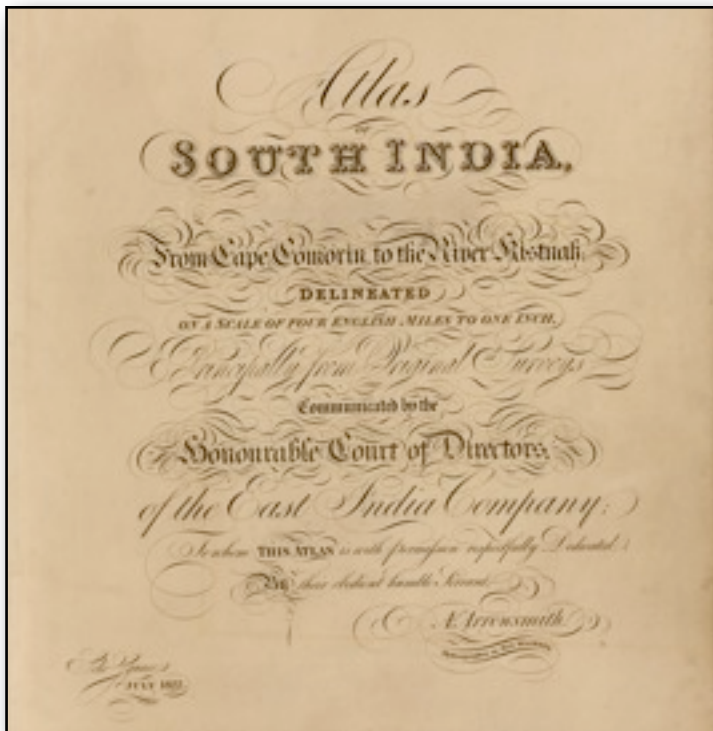 Atlas
OF
SOUTH INDIA,
From Cape Comorin to the River Kistnah,
DELINEATED
ON A SCALE OF FOUR ENGLISH MILES TO ONE INCH,
Principally from Original Surveys
Communicated by the
Honourable Court of Directors,
of the East India Company;
To whom THIS ATLAS is with permission respectfully Dedicated
By their obedient humble Servant
A Arrowsmith
JULY